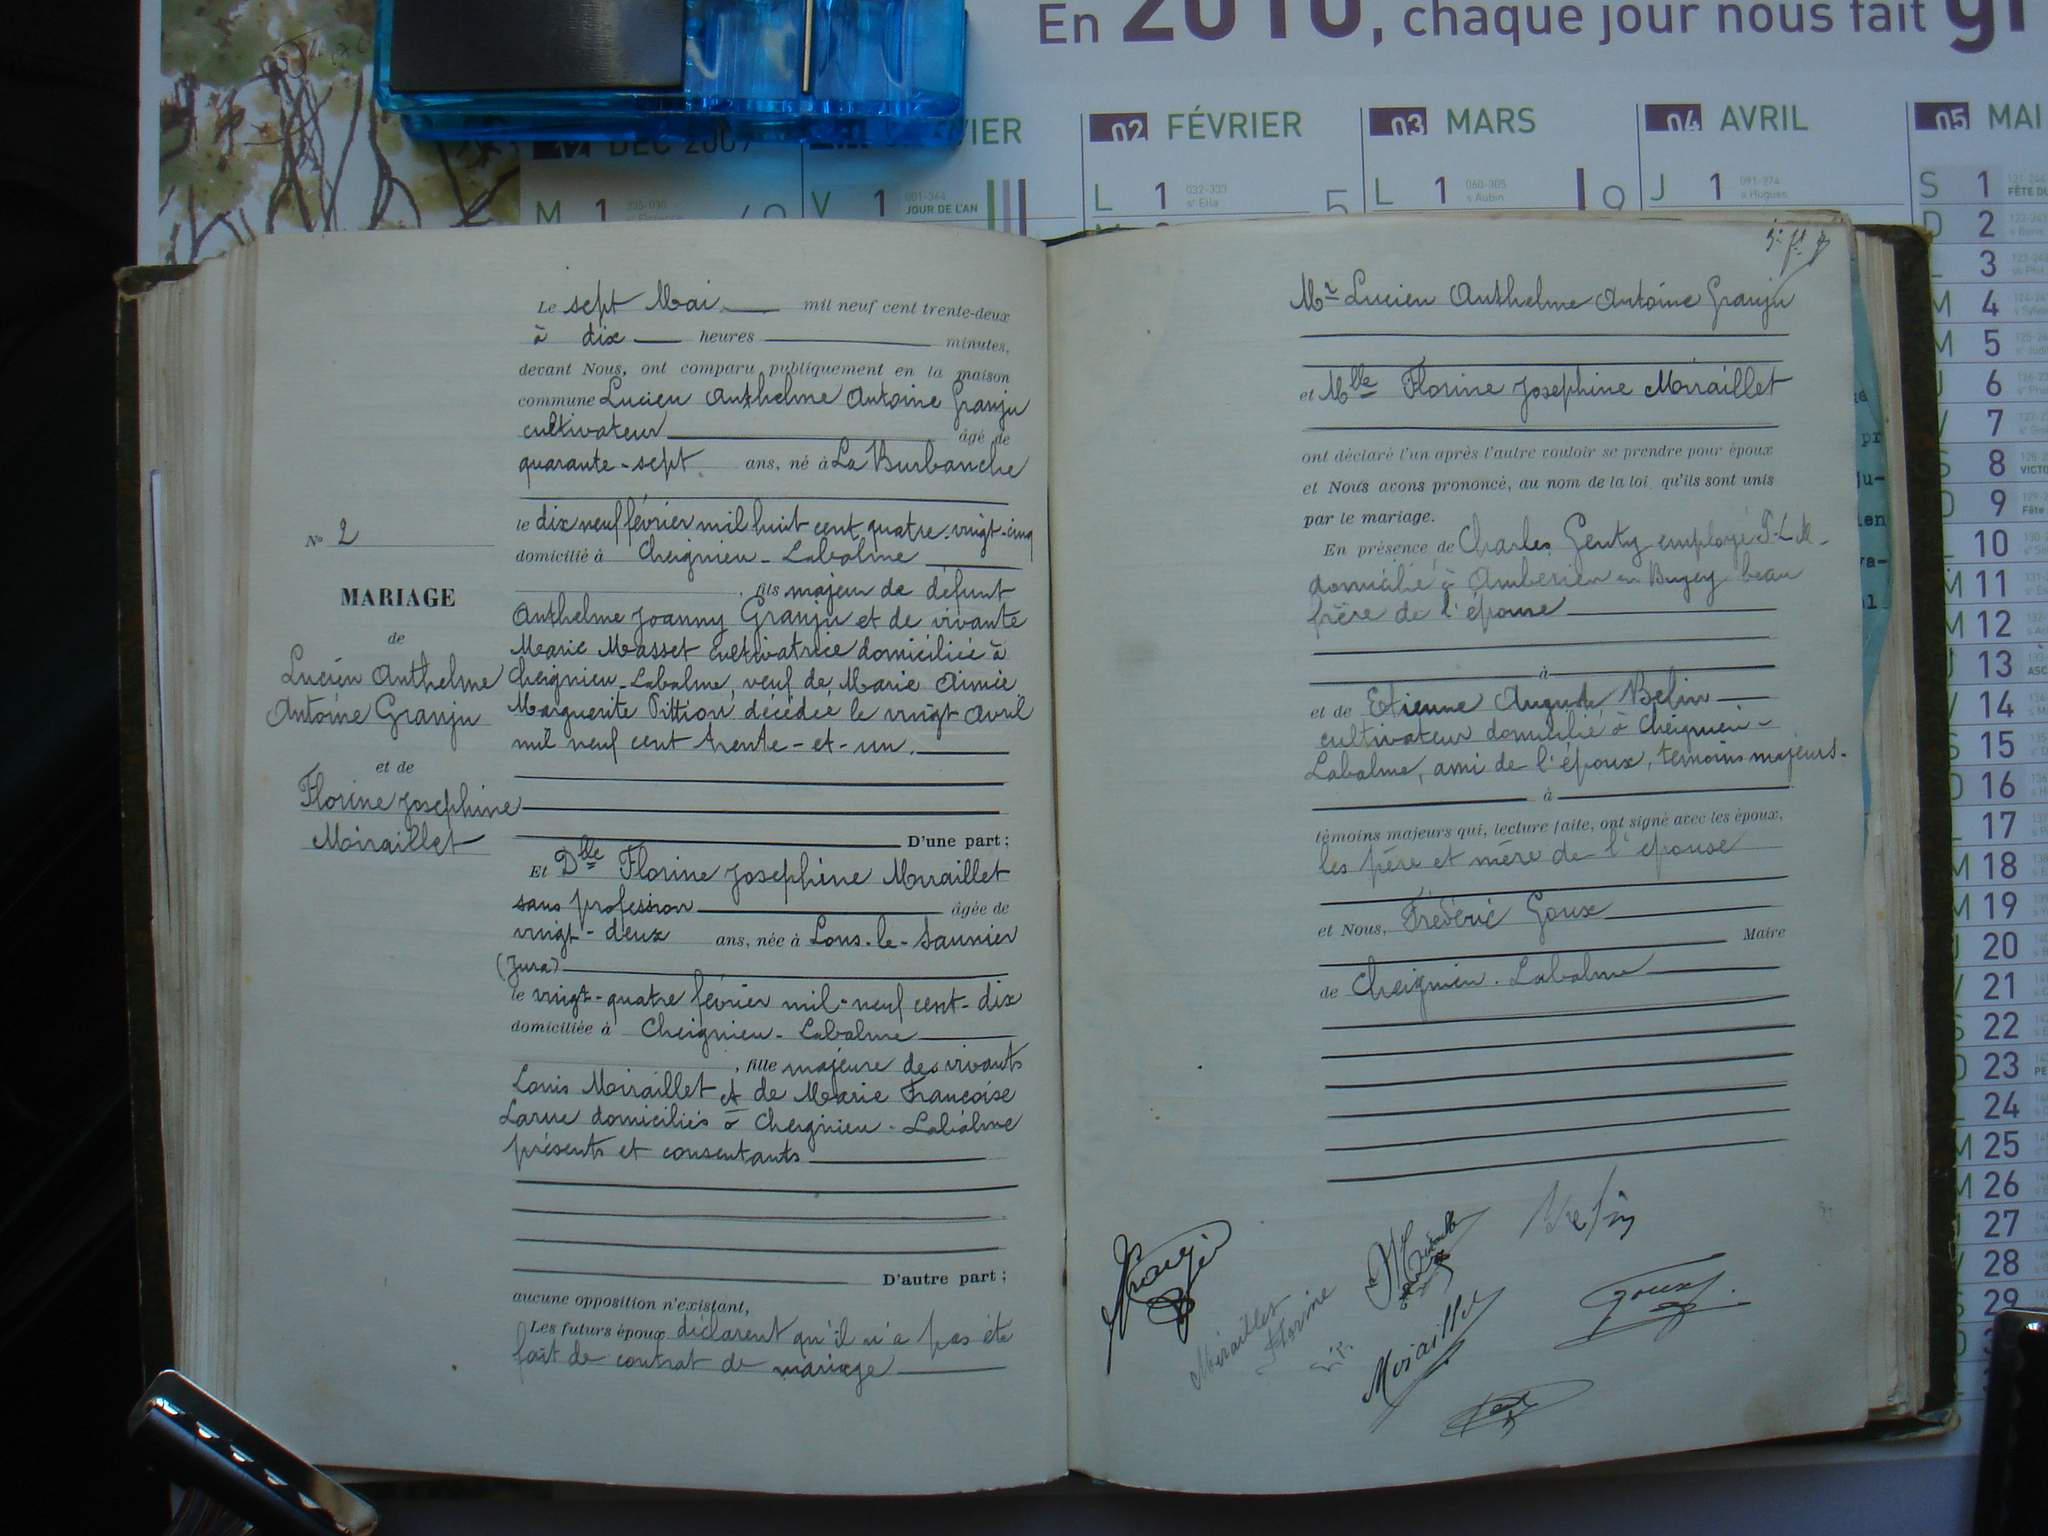 En 2010, chaque jour nous fait
DÉC 2009
02 FÉVRIER
03 MARS
04 AVRIL
05 MAI
M 1
V 1 001-364 JOUR DE L'AN
L 1 032-333 sᵗ Ella 5
L 1 060-305 s Aubin 9
J 1 091-274 s Hugues
S 1
2
3
4
5
6
7
8
9
10
11
12
13
14
15
16
17
18
19
20
21
22
23
24
25
26
27
28
29
N° 2
MARIAGE
de
Lucien Anthelme
Antoine Granju
et de
Florine Josephine
Miraillet
Le sept Mai mil neuf cent trente-deux
à dix heures minutes,
devant Nous, ont comparu publiquement en la maison
commune Lucien Anthelme Antoine Granju
cultivateur âgé de
quarante-sept ans, né à La Burbanche
le dix neuf février mil huit cent quatre-vingt-cinq
domicilié à Cheignieu-Labalme
, fils majeur de défunt
Anthelme Joanny Granju et de vivante
Marie Masset cultivatrice domiciliée à
Cheignieu-Labalme, veuf de Marie Aimée
Marguerite Pittion décédée le vingt Avril
mil neuf cent trente-et-un.
D'une part;
Et Dlle Florine Josephine Miraillet
sans profession âgée de
vingt-deux ans, née à Lons-le-Saunier
(Jura)
le vingt-quatre février mil-neuf cent-dix
domiciliée à Cheignieu-Labalme
, fille majeure des vivants
Louis Miraillet et de Marie Françoise
Larue domiciliés à Cheignieu-Labalme
présents et consentants
D'autre part;
aucune opposition n'existant,
Les futurs époux déclarent qu'il n'a pas été
fait de contrat de mariage
Mr Lucien Anthelme Antoine Granju
et Mlle Florine Josephine Miraillet
ont déclaré l'un après l'autre vouloir se prendre pour époux
et Nous avons prononcé, au nom de la loi qu'ils sont unis
par le mariage.
En présence de Charles Genty employé P-L-M-
domicilié à Ambérieu en Bugey beau
frère de l'épouse
à
et de Etienne Auguste Belin
cultivateur domicilié à Cheignieu-
Labalme, ami de l'époux, témoins majeurs.
à
témoins majeurs qui, lecture faite, ont signé avec les époux,
les père et mère de l'épouse
et Nous, Frédéric Goux
Maire
de Cheignieu-Labalme
Granju
Miraillet
Florine
Belin
Miraillet
Goux